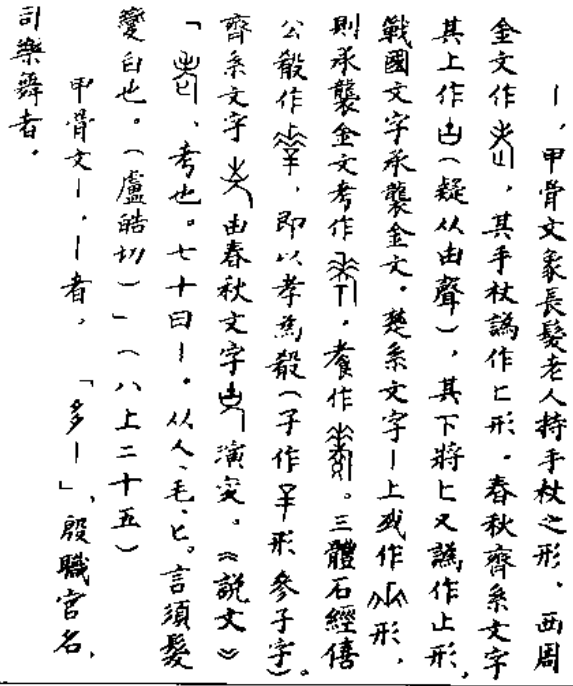 ｜，甲骨文象長髮老人持手杖之形．西周
金文作，其手杖譌作匕形．春秋齊系文字
其上作（疑从由聲），其下將匕又譌作止形，
戰國文字承襲金文．楚系文字｜上或作形，
則承襲金文考作，耆作。三體石經僖
公殽作，即以孝為殽（子作形參子字）。
齊系文字由春秋文字演变．《說文》
「、考也。七十曰｜．从人、毛、匕。言須髮
變白也。（盧皓切）」（八上二十五）
甲骨文｜．｜者，「多｜」、殷職官名，
司樂舞者．